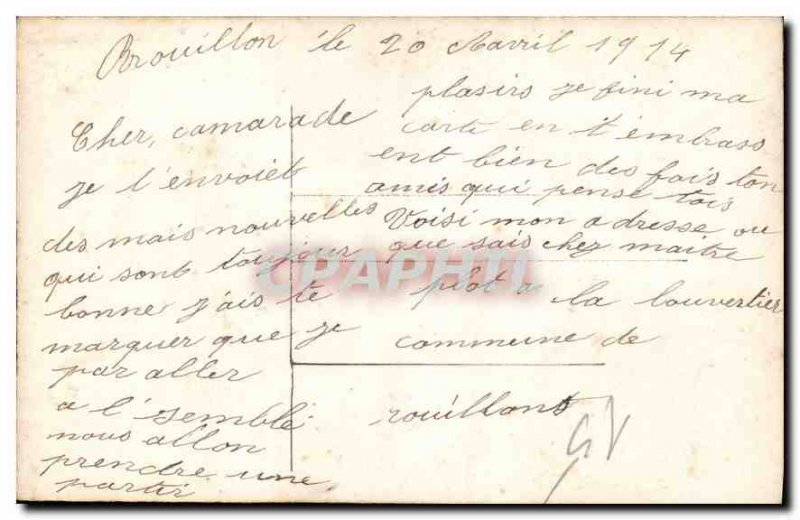 Brouillon le 20 Aavril 1914
Cher, camarade
je t'envoiet
des mais nouvelles
qui sont toujour
bonne j'ais te
marquer que je
par aller
a l'semble
nous allon
prendre une
partir
plasirs je fini ma
carte en t'embrass
ent bien des fais ton
amis qui pense tois
Voisi mon adresse ou
que sais chez maitre
plot a la louvertier
commune de
rouillont
CPAPHIL